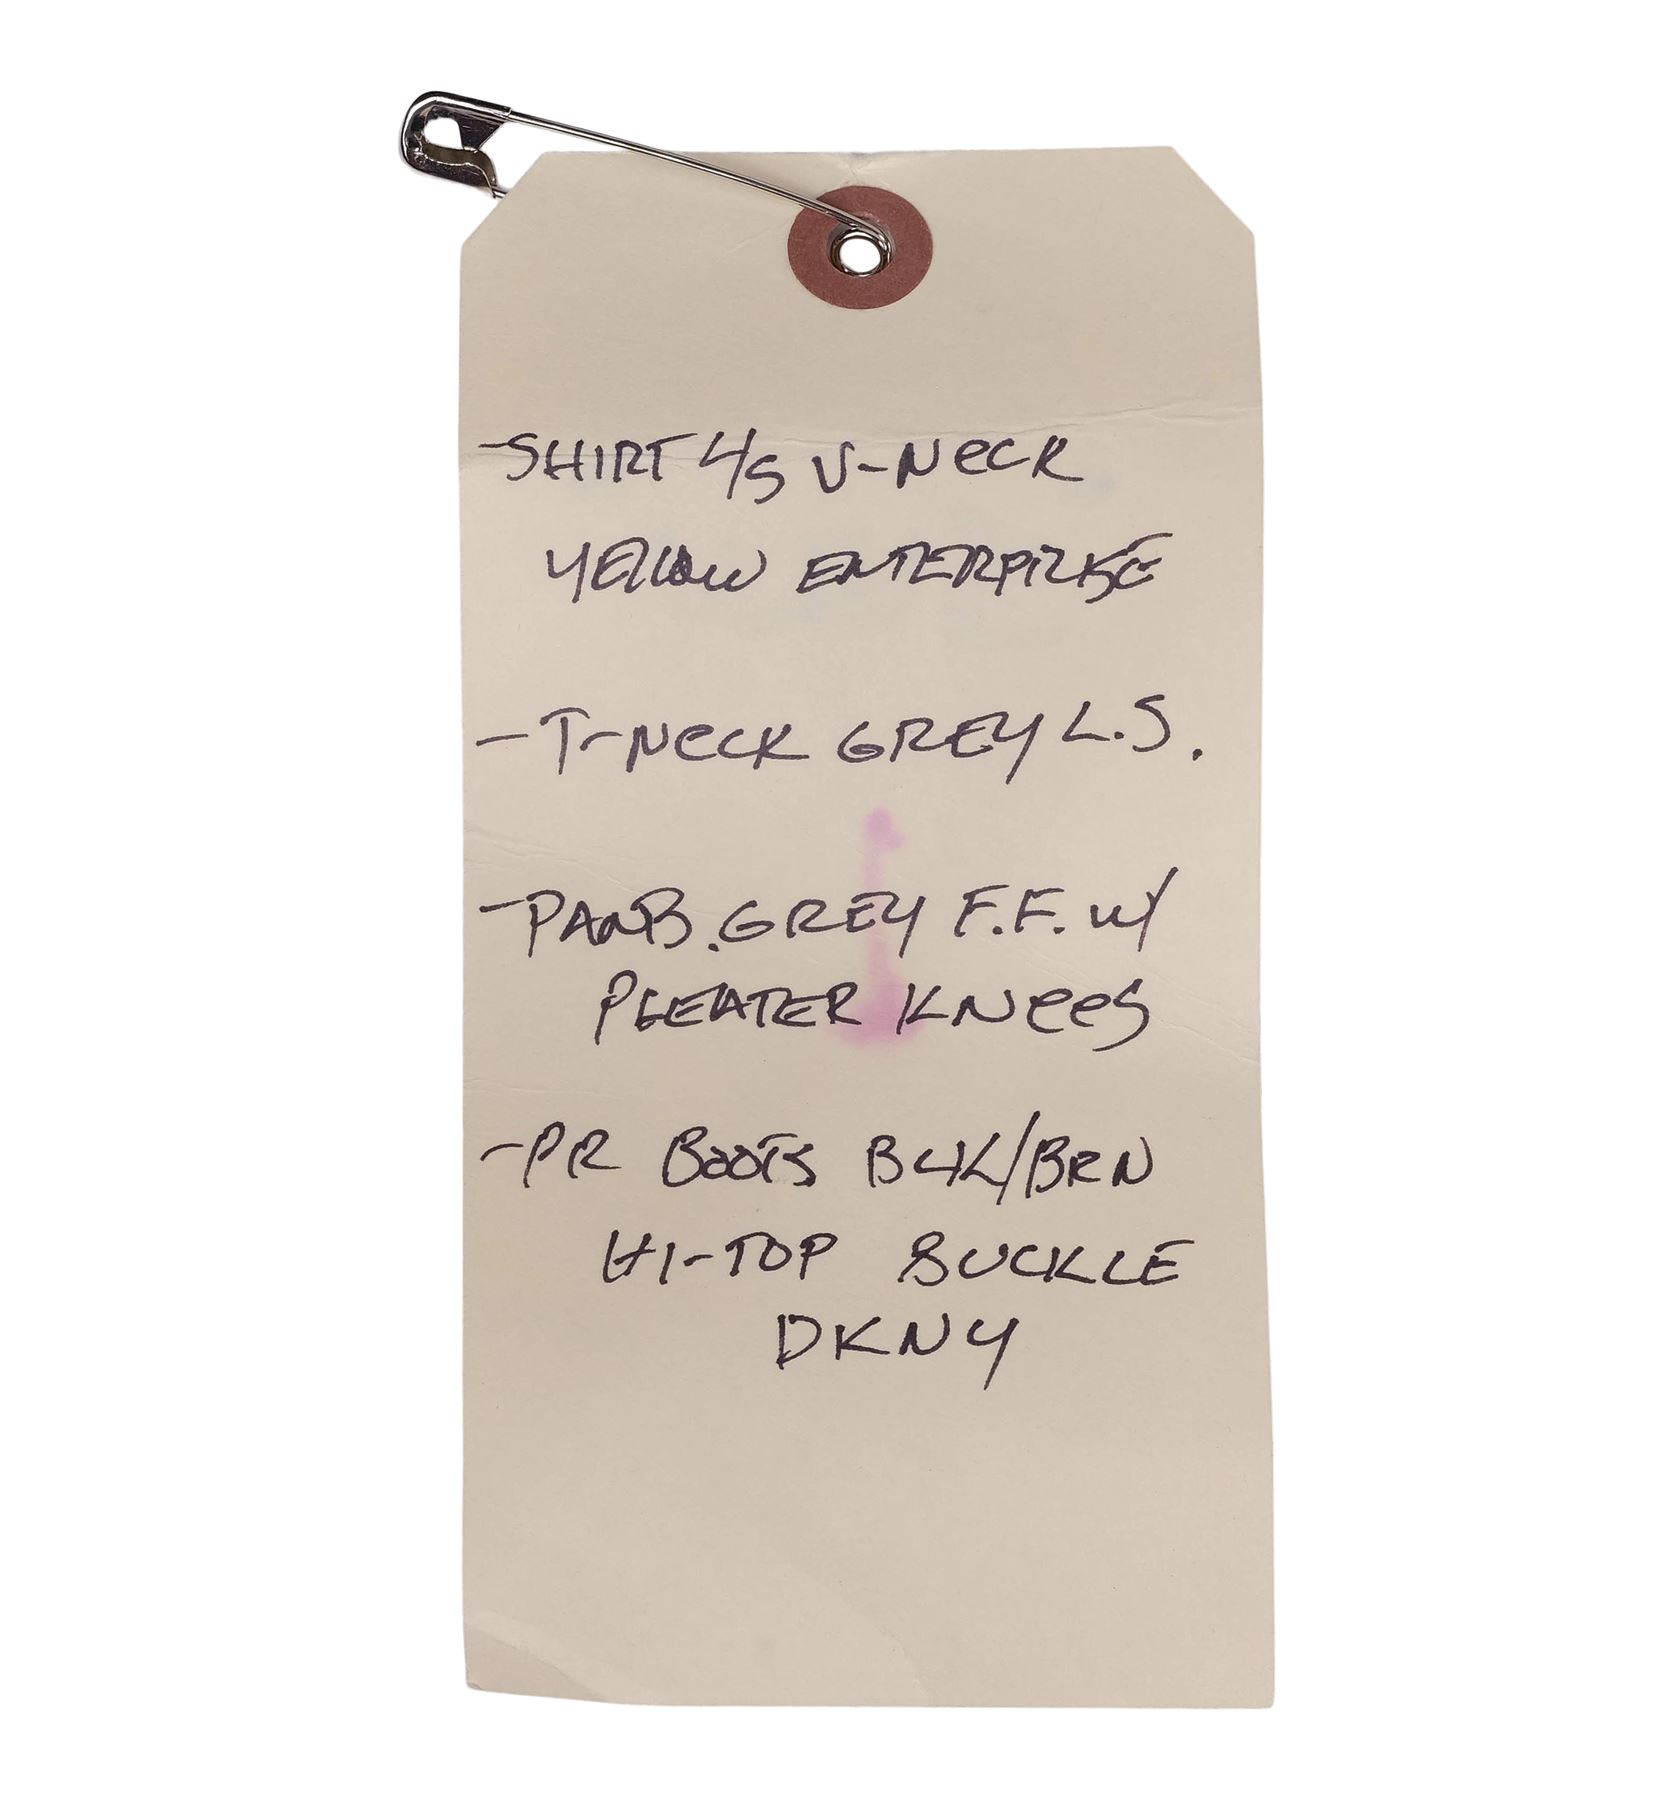 - SHIRT L/S V-NECK
YELLOW ENTERPRISE
- T-NECK GREY L.S.
- PANTS. GREY F.F. W/
PLEATER KNEES
- PR BOOTS BLK/BRN
HI-TOP BUCKLE
DKNY